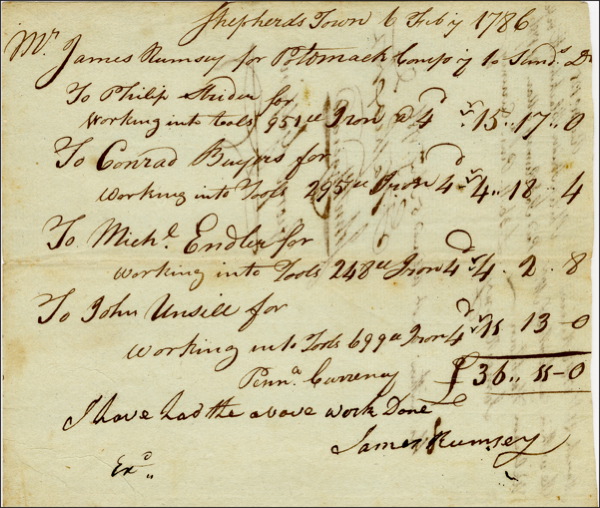 Shepherds Town 6 Feb'y 1786
Mr James Rumsey for Potomack Comp'y to Sund.s Dr
To Philip Strider for
Working into tools 951 lb Iron @ 4d 15.. 17.. 0
To Conrad Buyers for
Working into Tools 295 lb Iron 4d 4.. 18 4
To Mich.l Endler for
Working into Tools 248 lb Iron 4d 4. 2. 8
To John Unsill for
Working into Tools 699 lb Iron 4d 11 13-0
Penn.a Currency £36.. 11-0
I have had the above work Done
James Rumsey
Ex.d